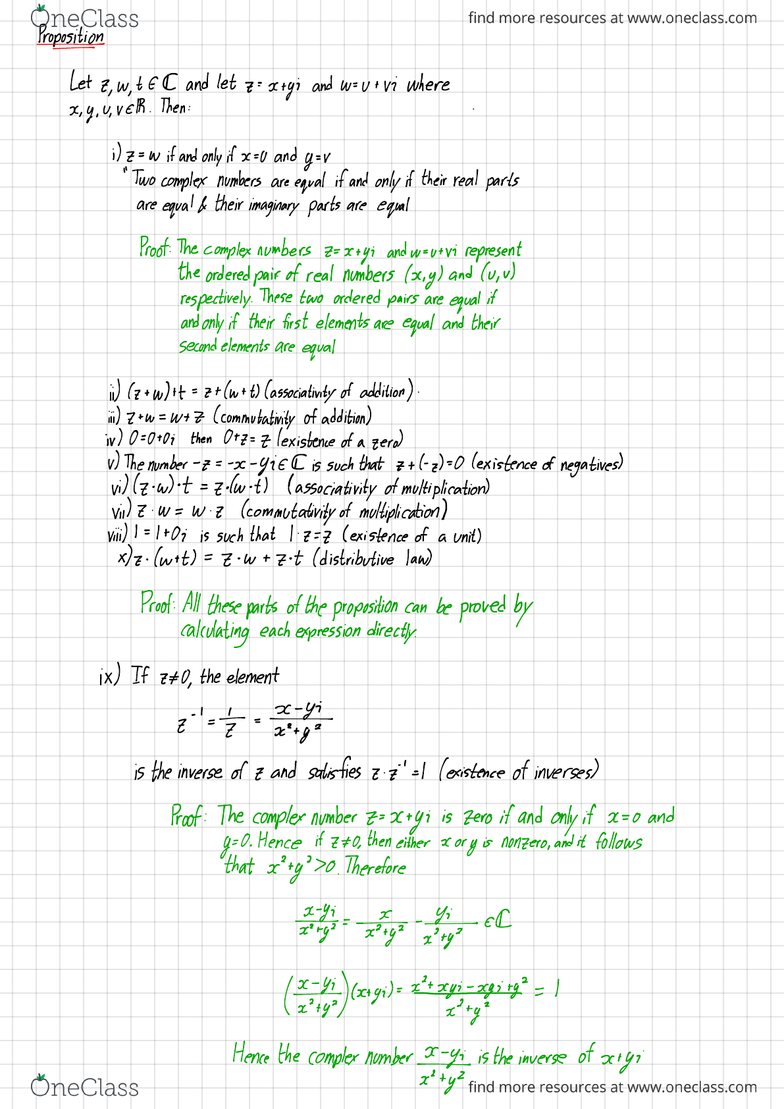 OneClass
find more resources at www.oneclass.com
Proposition
Let z, w, t ∈ ℂ and let z = x+yi and w = u + vi where
x, y, u, v ∈ ℝ. Then:
i) z = w if and only if x = u and y = v
"Two complex numbers are equal if and only if their real parts
are equal & their imaginary parts are equal
Proof: The complex numbers z = x+yi and w = u+vi represent
the ordered pair of real numbers (x,y) and (u,v)
respectively. These two ordered pairs are equal if
and only if their first elements are equal and their
second elements are equal
ii) (z+w)+t = z+(w+t) (associativity of addition).
iii) z+w = w+z (commutativity of addition)
iv) 0=0+0i then 0+z = z (existence of a zero)
v) The number -z = -x-yi ∈ ℂ is such that z+(-z)=0 (existence of negatives)
vi) (z·w)·t = z·(w·t) (associativity of multiplication)
vii) z·w = w·z (commutativity of multiplication)
viii) 1 = 1+0i is such that 1·z=z (existence of a unit)
x) z·(w+t) = z·w + z·t (distributive law)
Proof: All these parts of the proposition can be proved by
calculating each expression directly.
ix) If z≠0, the element
z⁻¹ = 1/z = (x-yi)/(x²+y²)
is the inverse of z and satisfies z·z⁻¹ = 1 (existence of inverses)
Proof: The complex number z = x+yi is zero if and only if x=0 and
y=0. Hence if z≠0, then either x or y is nonzero, and it follows
that x²+y²>0. Therefore
(x-yi)/(x²+y²) = x/(x²+y²) - yi/(x²+y²) ∈ ℂ
((x-yi)/(x²+y²))(x+yi) = (x²+xyi-xyi+y²)/(x²+y²) = 1
Hence the complex number (x-yi)/(x²+y²) is the inverse of x+yi
OneClass
find more resources at www.oneclass.com